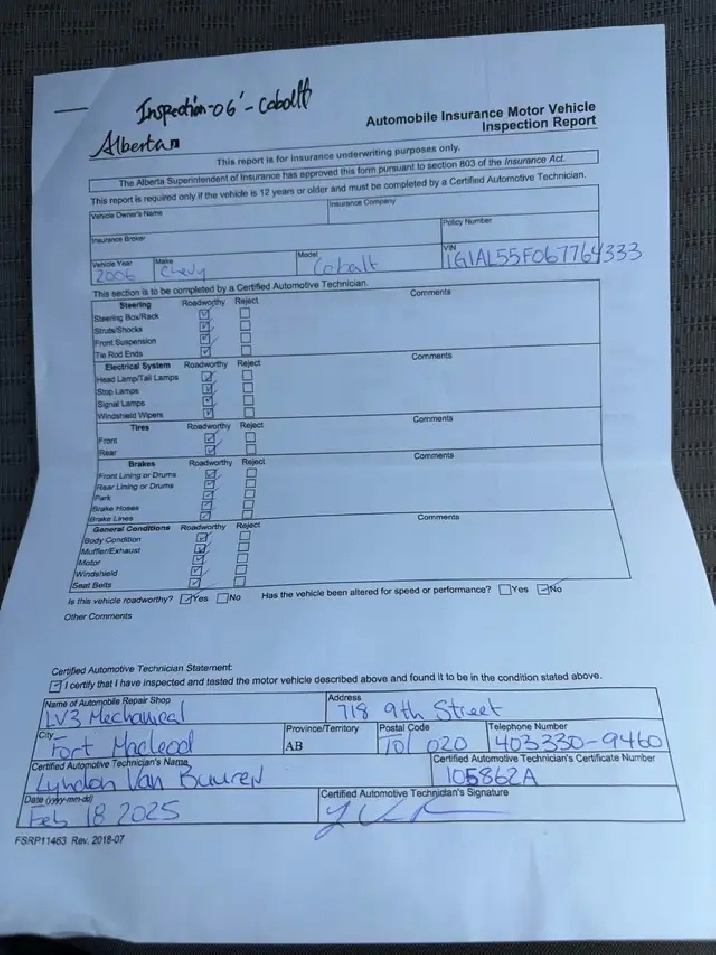 Inspection-06'-Cobalt
Albertan
Automobile Insurance Motor Vehicle
Inspection Report
This report is for insurance underwriting purposes only.
The Alberta Superintendent of Insurance has approved this form pursuant to section 803 of the Insurance Act.
This report is required only if the vehicle is 12 years or older and must be completed by a Certified Automotive Technician.
Vehicle Owner's Name Insurance Company
Insurance Broker Policy Number
Vehicle Year Make Model VIN
2006 Chevy Cobalt 1G1AL55F067764333
This section is to be completed by a Certified Automotive Technician.
Steering Roadworthy Reject Comments
Steering Box/Rack
Struts/Shocks
Front Suspension
Tie Rod Ends
Electrical System Roadworthy Reject Comments
Head Lamp/Tail Lamps
Stop Lamps
Signal Lamps
Windshield Wipers
Tires Roadworthy Reject Comments
Front
Rear
Brakes Roadworthy Reject Comments
Front Lining or Drums
Rear Lining or Drums
Park
Brake Hoses
Brake Lines
General Conditions Roadworthy Reject Comments
Body Condition
Muffler/Exhaust
Motor
Windshield
Seat Belts
Is this vehicle roadworthy? Yes No Has the vehicle been altered for speed or performance? Yes No
Other Comments
Certified Automotive Technician Statement
I certify that I have inspected and tested the motor vehicle described above and found it to be in the condition stated above.
Name of Automobile Repair Shop Address
LV3 Mechanical 718 9th Street
City Province/Territory Postal Code Telephone Number
Fort Macleod AB T0L 0Z0 403330-9460
Certified Automotive Technician's Name Certified Automotive Technician's Certificate Number
Lyndon Van Buuren 105862A
Date (yyyy-mm-dd) Certified Automotive Technician's Signature
Feb 18 2025
FSRP11463 Rev. 2018-07